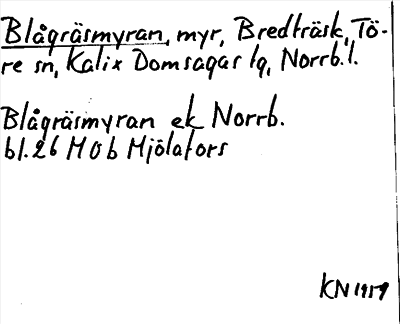 Blågräsmyran, myr, Bredträsk, Tö-
re sn, Kalix Domsagas tg, Norrb. l.
Blågräsmyran ek Norrb.
bl. 26 M Ö b Mjölafors
KN 1959